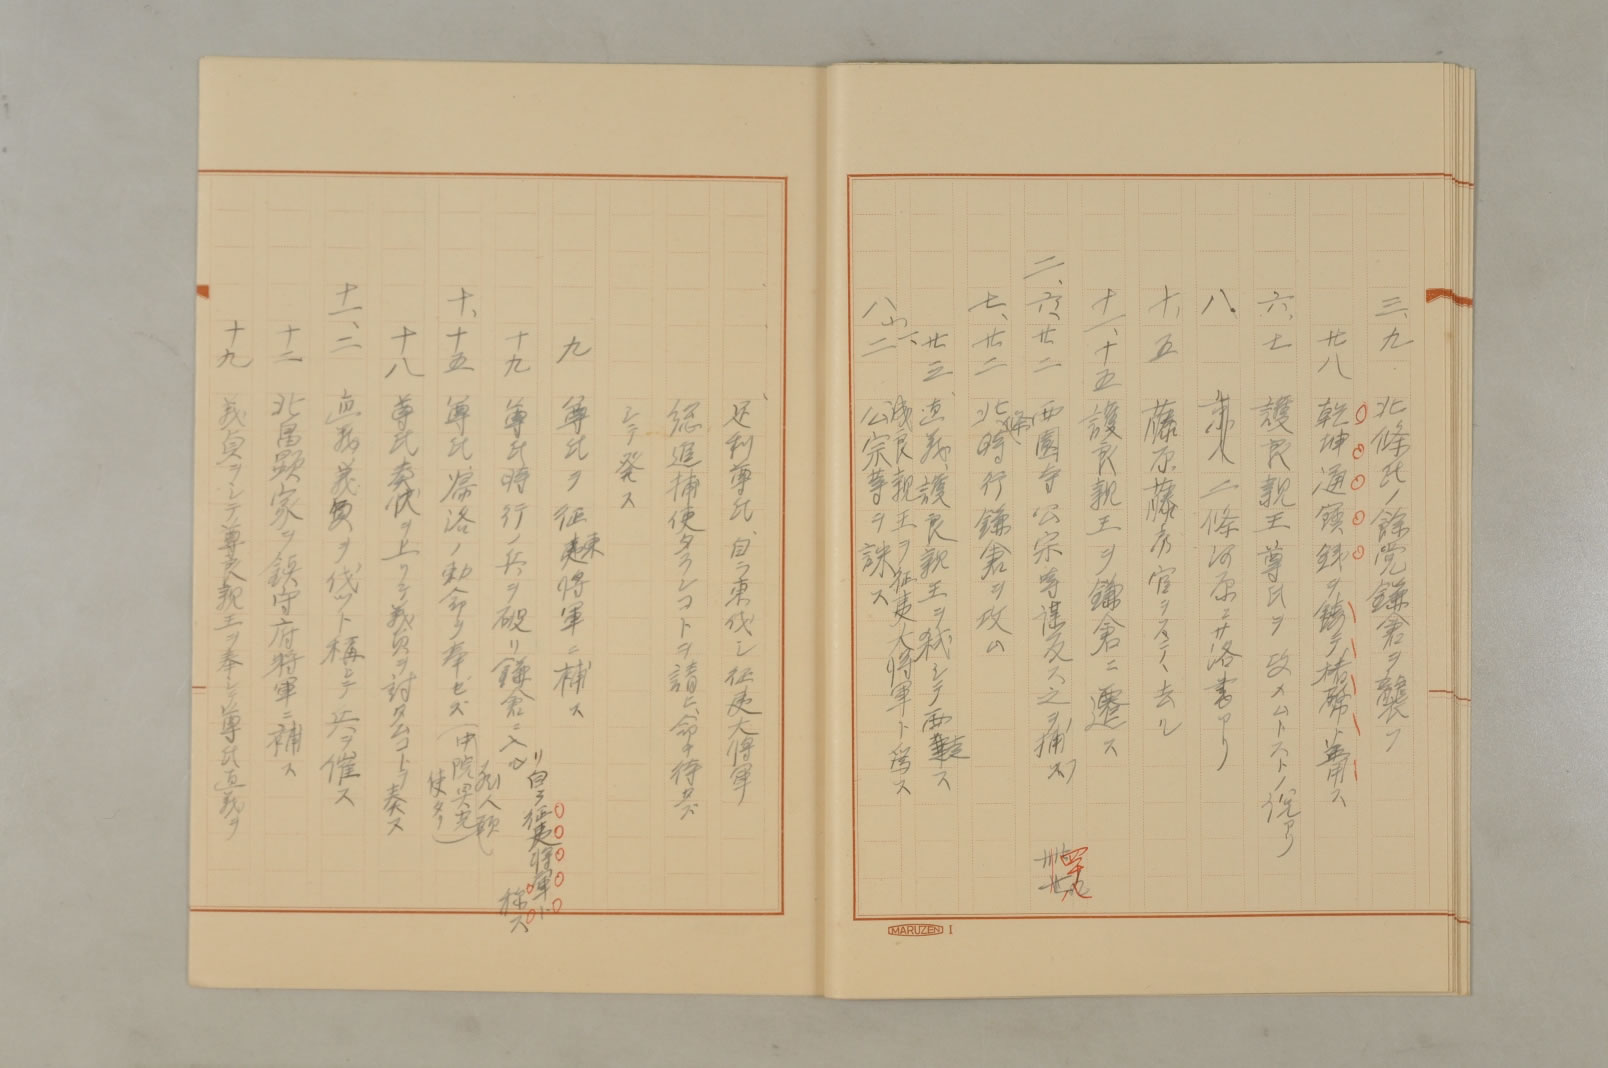 三、九 北條氏ノ餘党鎌倉ヲ襲フ
廿八 乾坤通寳銭ヲ鋳テ楮幣ト並用ス
六、七 護良親王尊氏ヲ攻メムトストノ説アリ
八、 二條河原ニ落書アリ
十、五 藤原藤房官ヲステ、去ル
十一、十五 護良親王ヲ鎌倉ニ遷ス
二、六、廿二 西園寺公宗等謀反ス之ヲ捕フ
七、廿二 北條時行鎌倉ヲ攻ム
廿三、直義、護良親王ヲ弑シテ西走ス
八、一、成良親王ヲ征夷大将軍ト為ス
二 公宗等ヲ誅ス
MARUZEN I
足利尊氏、自ラ東伐シ征夷大将軍
総追捕使タランコトヲ請ヒ、命ヲ待タズ
シテ発ス
九 尊氏ヲ征東将軍ニ補ス
十九 尊氏時行ノ兵ヲ破リ鎌倉ニ入リ自ラ征夷将軍ト称ス
十、十五 尊氏帰洛ノ勅命ヲ奉ゼズ(蔵人頭中院具光使タリ)
十八 尊氏奏状ヲ上リテ義貞ヲ討タムコトヲ奏ス
十一、二 直義、義貞ヲ伐ツト稱シテ兵ヲ催ス
十二 北畠顕家ヲ鎮守府将軍ニ補ス
十九 義貞ヲシテ尊良親王ヲ奉シ尊氏直義ヲ